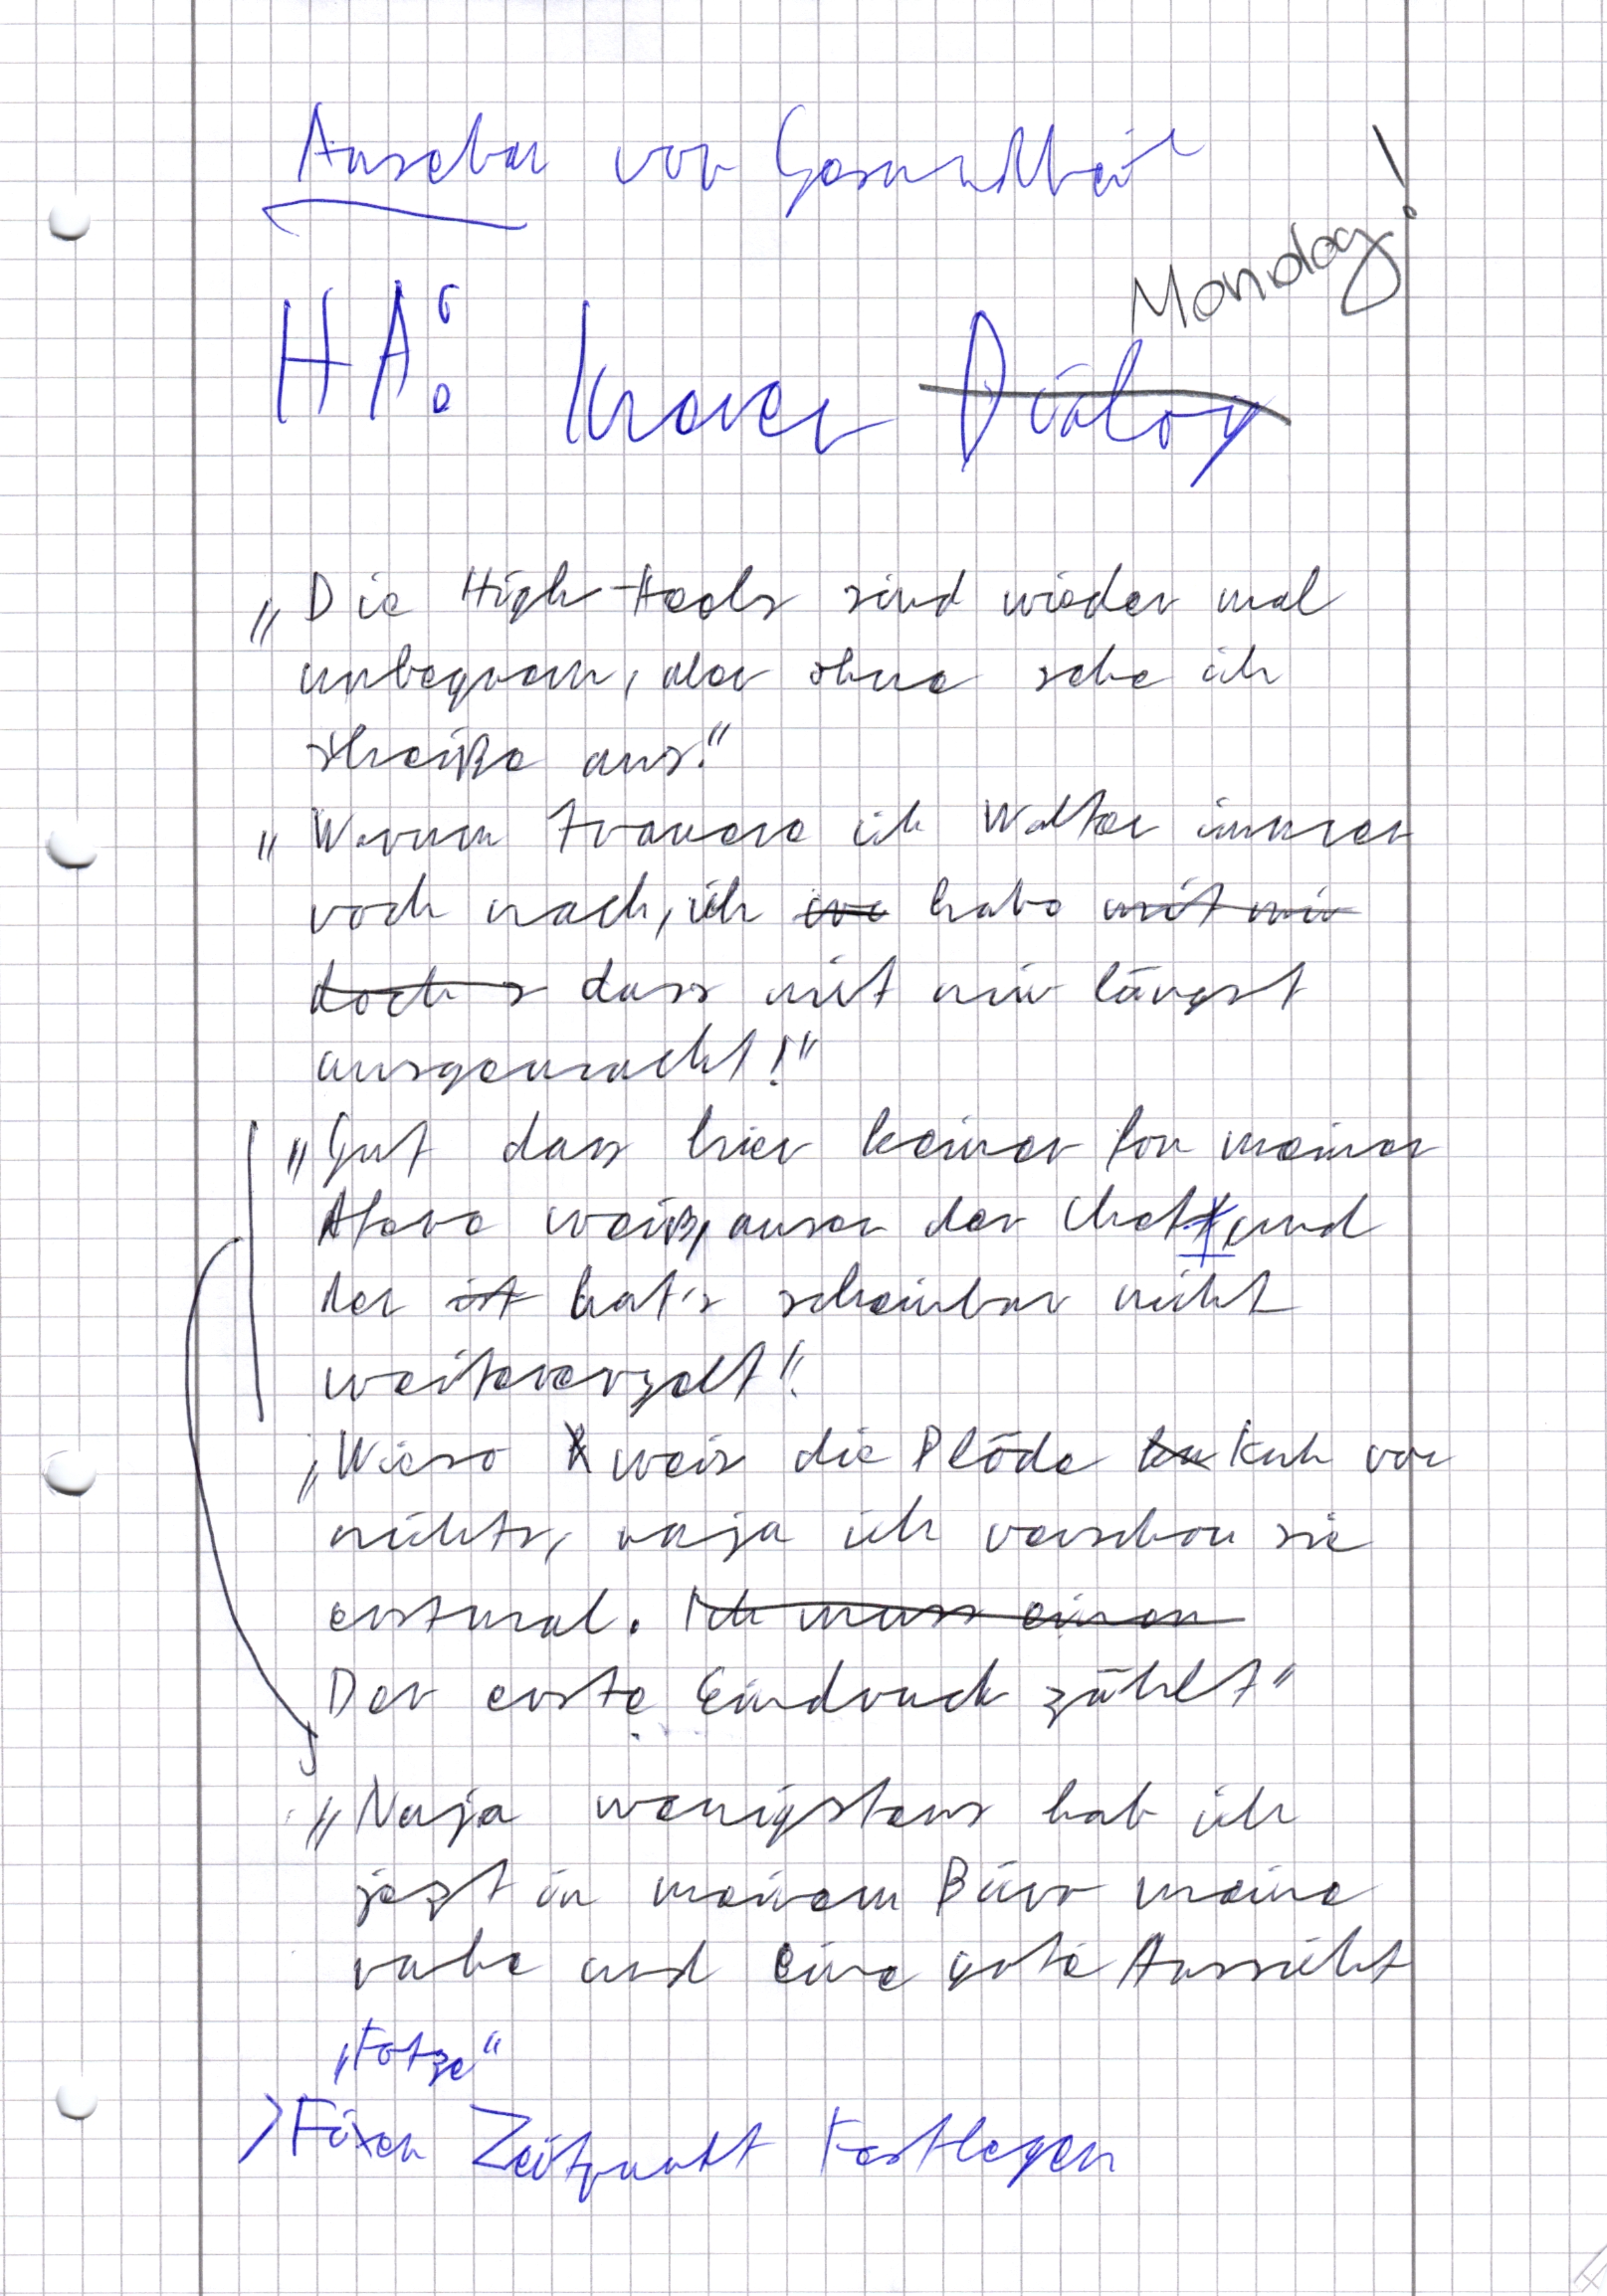 Ansehen von Gesundheit
Monolog!
HA: Innerer Dialog
„Die High-Heels sind wieder mal
unbequem, aber ohne sehe ich
scheiße aus."
„Warum trauere ich Walter immer
noch nach, ich habe mit mir
doch s dass mit mir längst
ausgemacht!"
„Gut dass hier keiner fon meiner
Afere weiß, auser der Chef, und
der ist hat's scheinbar nicht
weitererzelt".
„Wieso weis die Plöde Kuh von
nichts, naja ich verschon sie
erstmal. Ich muss einen
Der erste Eindruck zählt"
„Naja wenigstens hab ich
jezt in meinem Büro meine
ruhe und eine gute Aussicht
„Fotze"
>Fixen Zeitpunkt Festlegen